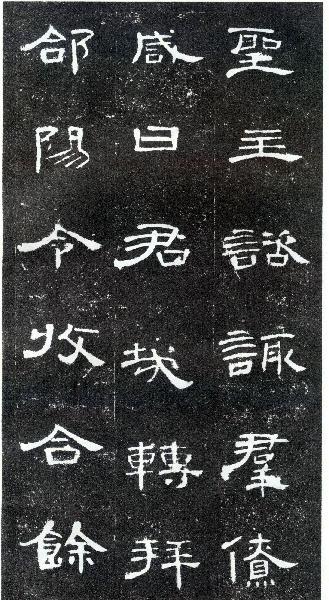 聖主諮諏羣僚
咸曰君哉轉拜
郃陽令收合餘